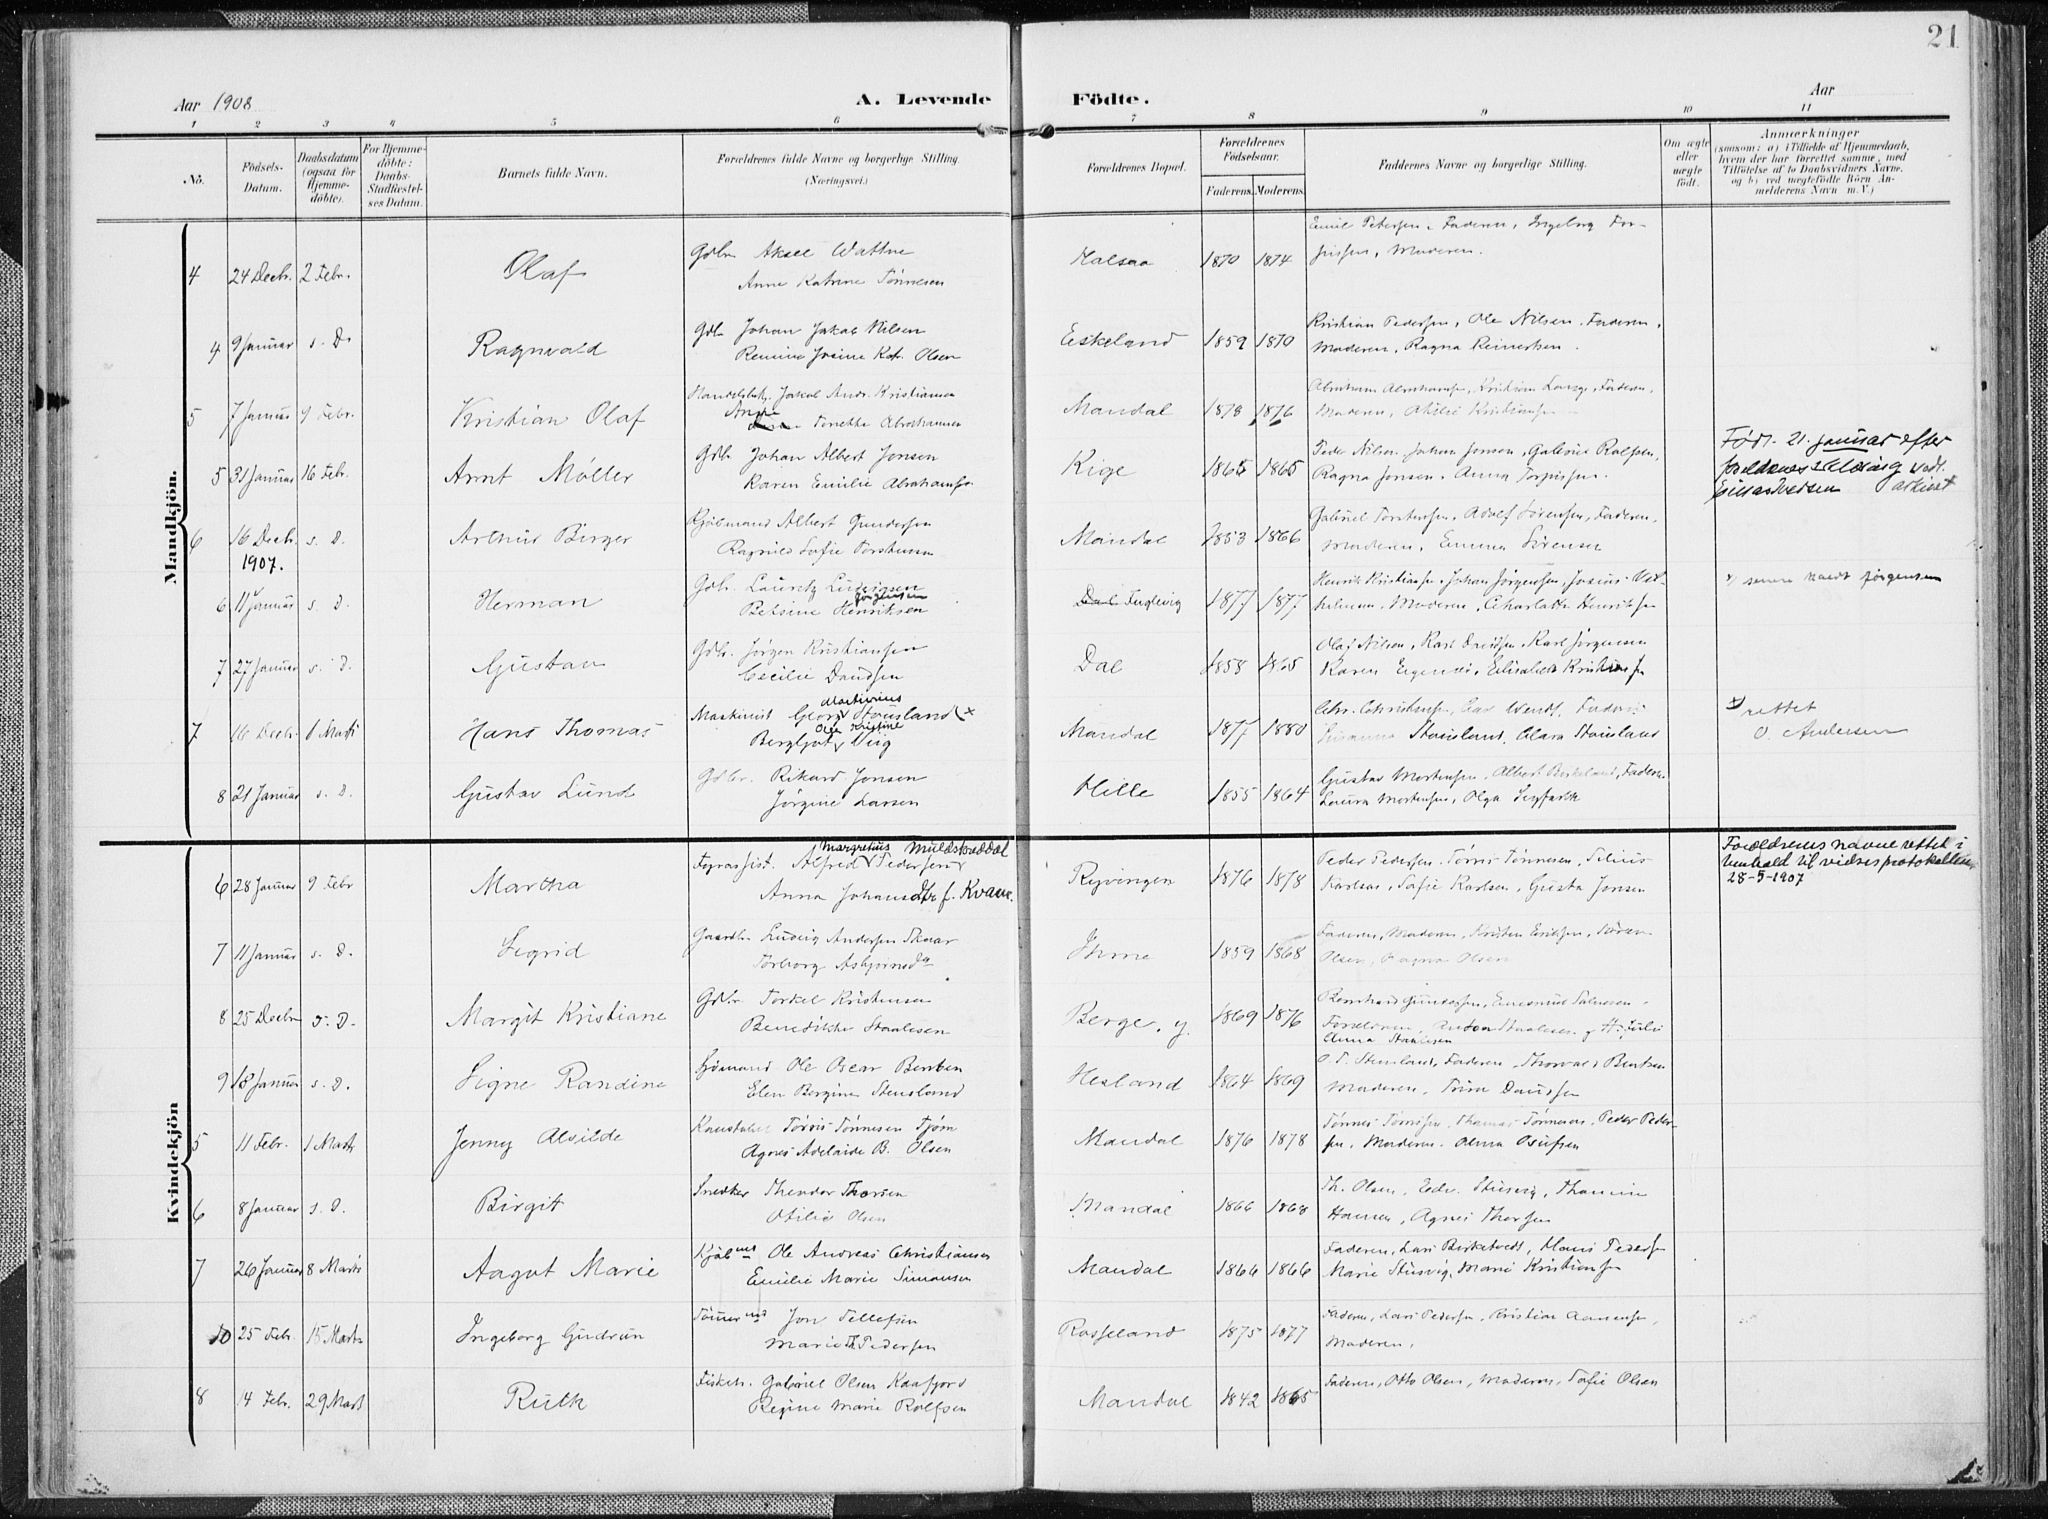 21
Aar 1908
A. Levende Födte.
Aar
1 2 3 4 5 6 7 8 9 10 11
No.
Födsels-Datum.
Daabsdatum (ogsaa for Hjemme-döbte).
For Hjemme-döbte: Daabs-Stadfæstel-ses Datum.
Barnets fulde Navn.
Forældrenes fulde Navne og borgerlige Stilling.
(Næringsvei.)
Forældrenes Bopæl.
Forældrenes Födselsaar.
Faderens. Moderens.
Faddernes Navne og borgerlige Stilling.
Om ægte eller uægte födt.
Anmærkninger
(saasom: a) i Tilfælde af Hjemmedaab, hvem der har forrettet samme, med Tilföielse af to Daabsvidners Navne, og b) ved uægtefödte Börn An-melderens Navn m. V.)
Mandkjön.
4 24 Decbr. 2 Febr. Olaf
Gdbr. Aksel Wattne
Anne Katrine Tønnesen
Halsaa 1870 1874
Emil Pedersen, Faderen, Ingeborg Tor-
jusen, Moderen.
4 9 Januar s. D. Ragnvald
Gdb. Johan Jakob Nilsen
Remine Josine Kat. Olsen
Eskeland 1859 1870
Kristian Pedersen, Ole Nilsen, Faderen,
Moderen, Ragna Reinertsen.
5 7 Januar 9 Febr. Kristian Olaf
Jakob Andr. Kristiansen
Tonette Abrahamsen
Mandal 1878 1876
Abraham Abrahamsen, Kristian Lange, Faderen,
Moderen, Otilie Kristiansen
5 31 Januar 16 Febr. Arnt Møller
Gdb. Johan Albert Jonsen
Karen Emilie Abrahamsen
Kige 1865 1865
Peder Nilsen, Johan Jonsen, Rolfsen,
Ragna Jonsen, Anna Torjusen.
Født 21. januar efter
6 16 Decbr. 1907. s. D. Arthur Birger
Kjølmand Albert Gundersen
Ragnild Sofie Torstensen
Mandal 1853 1866
Gabriel Torstensen, Adolf Sørensen, Faderen,
Moderen, Emma Sørensen
6 11 Januar s. D. Herman
Gdbr. Lauritz Ludvigsen
Jørgensen
Betsine Henriksen
Dal Fuglevig 1877 1877
Henrik Kristiansen, Johan Jørgensen, Josias Vil-
helmsen, Moderen, Charlotte Henriksen
x) senere kaldt Jørgensen
7 27 Januar s. D. Gustav
Gdbr. Jørgen Kristiansen
Cecilie Davidsen
Dal 1858 1865
Olaf Nilsen, Karl Davidsen, Karl Jørgensen
Karen Eigenes, Elisabeth Kristiansen
7 16 Decbr. 1 Marts Hans Thomas
Martinius
Maskinist Georg Stousland x
Olga Kristine
Bergljot Viig
Mandal 1877 1880
Chr. Christensen, Carl Wendt, Faderen
Susanna Stousland, Clara Stousland
x) rettet
O. Andersen
8 21 Januar s. D. Gustav Lund
Gdbr. Rikard Jonsen
Jørgine Larsen
Hille 1855 1864
Gustav Mortensen, Albert Birkeland, Faderen
Laura Mortensen, Olga
Kvindekjön
6 28 Januar 9 Febr Martha
Margretius Muldskreddal
Fyrassist. Alfred Pedersen
Anna Johansdtr f. Kvave.
Ryvingen 1876 1878
Peder Pedersen, Tørris Tønnesen, Silius
Karlsen, Sofie Karlsen, Gusta Jonsen
Forældrenes navne rettet i
henhold til vielsesprotokollen
28-5-1907
7 11 Januar s. D. Sigrid
Gaardbr. Ludvig Andersen Skaar
Torborg Asbjørnsda
Ihme 1859 1868
Faderen, Moderen, Kristen Eriksen, Søren
Olsen, Ragna Olsen
8 25 Decbr s. D. Margit Kristiane
Gdbr. Torkel Kristensen
Benedikte Staalesen
Berge, y. 1869 1876
Bernhard Gundersen, Emanuel Salvesen
Forældrene, Anton Staalesen
Anna Staalesen
9 18 Januar s. D. Signe Randine
Sjømand Ole Oscar Bentsen
Elen Bergine Stensland
Hesland 1864 1869
O. T. Stensland, Faderen, Thorvald Bentsen
Moderen, Tora Davidsen
5 11 Febr. 1 Marts Jenny Alvilde
Konstabel Tørris Tønnesen Tjøm
Agnes Adelaide B. Olsen
Mandal 1876 1878
Tønnes Tørrisen, Thomas Tønnesen, Peder Peder-
sen, Moderen, Anna Osufsen
6 8 Januar s. D. Birgit
Snedker Theodor Thorsen
Otilie Olsen
Mandal 1866 1868
Th. Olsen, Edv. Stusvig, Thomine
Hansen, Agnes Thorsen
7 26 Januar 8 Marts Aagot Marie
Kjøbmd Ole Andreas Christiansen
Emilie Marie Simonsen
Mandal 1866 1866
Faderen, Lars Birketvedt, Hans Pedersen
Marie Stusvig, Marie Kristiansen
10 25 Febr. 15 Marts Ingeborg Gudrun
Tømmermd Jon Tellefsen
Marie Th Pedersen
Rosseland 1875 1877
Faderen, Lars Pedersen, Kristian Aanensen,
Moderen.
8 14 Febr. 29 Marts Ruth
Fisker. Gabriel Olsen Kaafjord
Regine Marie Rolfsen
Mandal 1842 1865
Faderen, Otto Olsen, Moderen, Sofie Olsen